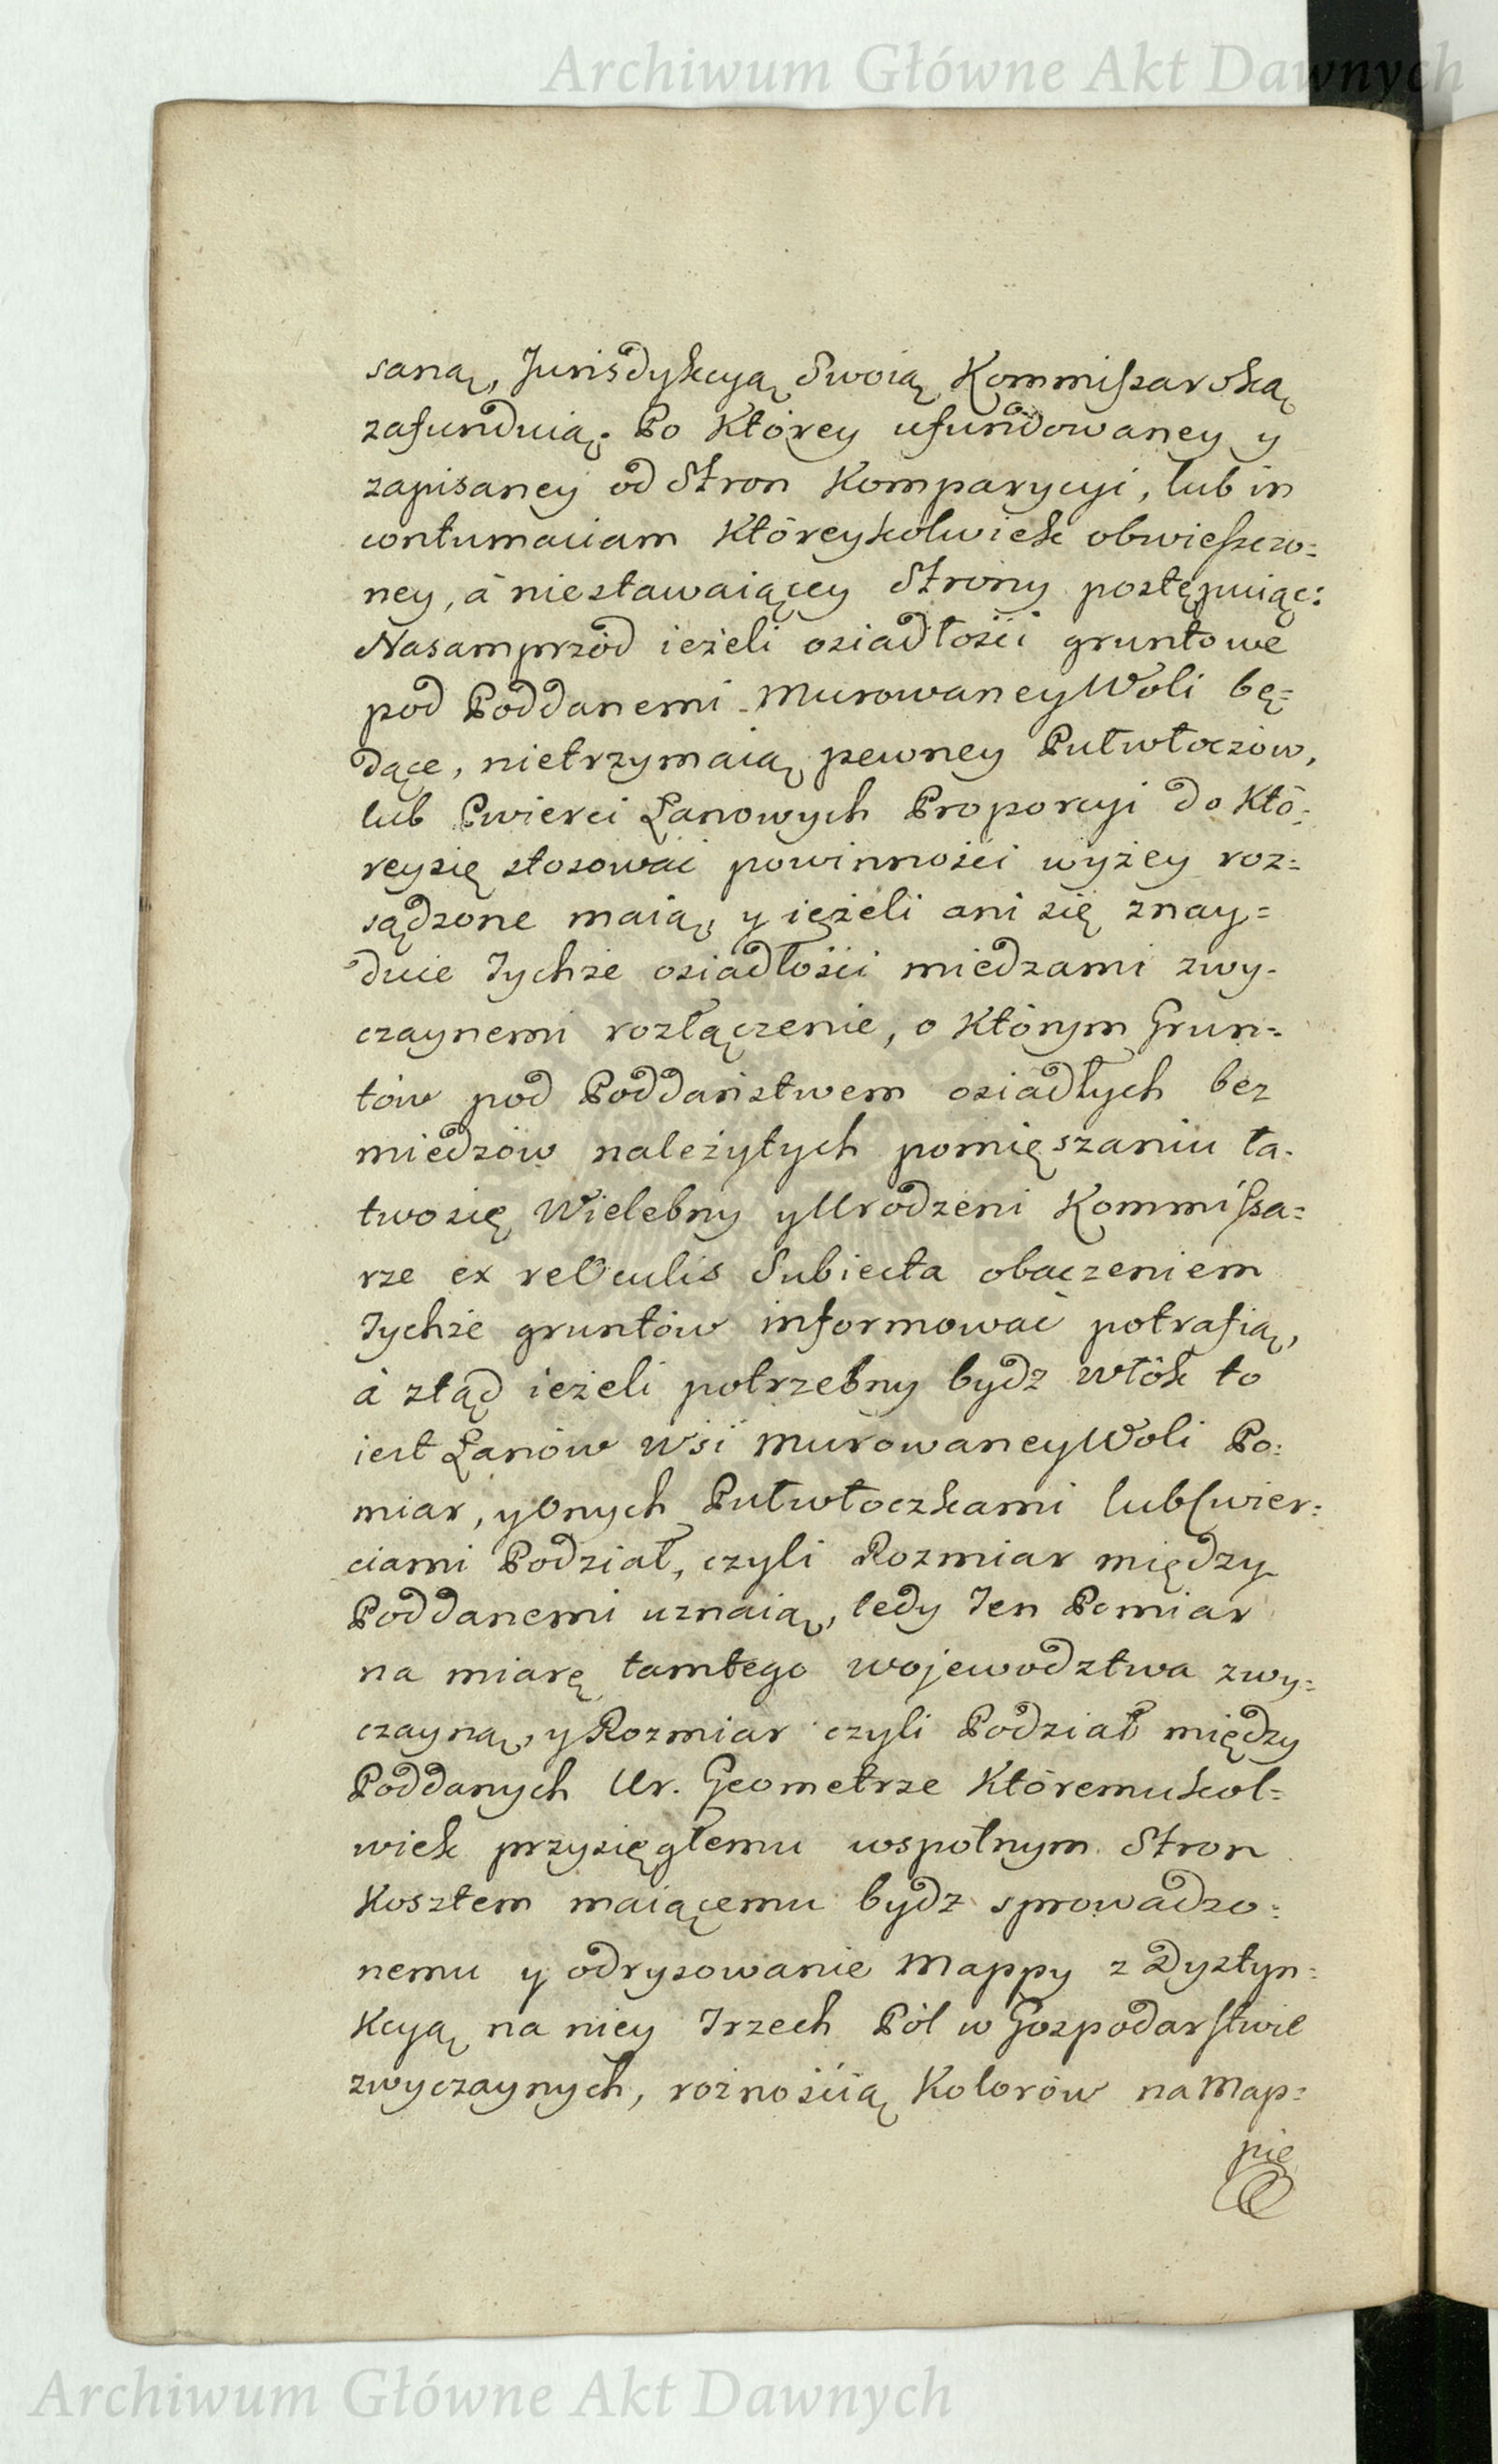 Archiwum Główne Akt Dawnych
saną, Jurisdykcyą Swoią Kommißarską
zafunduią. Po Którey ufundowaney y
zapisaney od Stron Komparycyi, lub in
contumaciam Któreykolwiek obwießczo=
ney, á niestawaiącey Strony postępuiąc:
Nasamprzód ieżeli osiadłości gruntowe
pod Poddanemi Murowaney Woli bę=
dące, nietrzymaią pewney Pułwłoczów,
lub Cwierci Łanowych Proporcyi do Któ=
reysię stosować powinności wyżey roz=
sądzone maią, y ieżeli ani się znay=
duie Tychże osiadłości miedzami zwy=
czaynemi rozłączenie, o Którym Grun=
tów pod Poddaństwem osiadłych bez
miedzów należytych pomięszaniu ła=
twosię Wielebny y Urodzeni Kommißa=
rze ex re Oculis Subiecta obaczeniem
Tychże gruntów informować potrafią,
á ztąd ieżeli potrzebny bydz włók to
iest Łanów Wsi Murowaney Woli Po=
miar, y Onych Pułwłoczkami lub Cwier=
ciami Podział, czyli Rozmiar między
Poddanemi uznaią, tedy Ten Pomiar
na miarę tamtego województwa zwy=
czayną, y Rozmiar czyli Podział między
Poddanych Ur. Geometrze Któremukol=
wiek przysięgłemu wspólnym Stron
Kosztem maiącemu bydz sprowadzo=
nemu y odrysowanie Mappy z Dystyn=
Kcyą na niey Trzech Pól w Gospodarstwie
zwyczaynych, różnością Kolorów na Map=
pie
Archiwum Główne Akt Dawnych